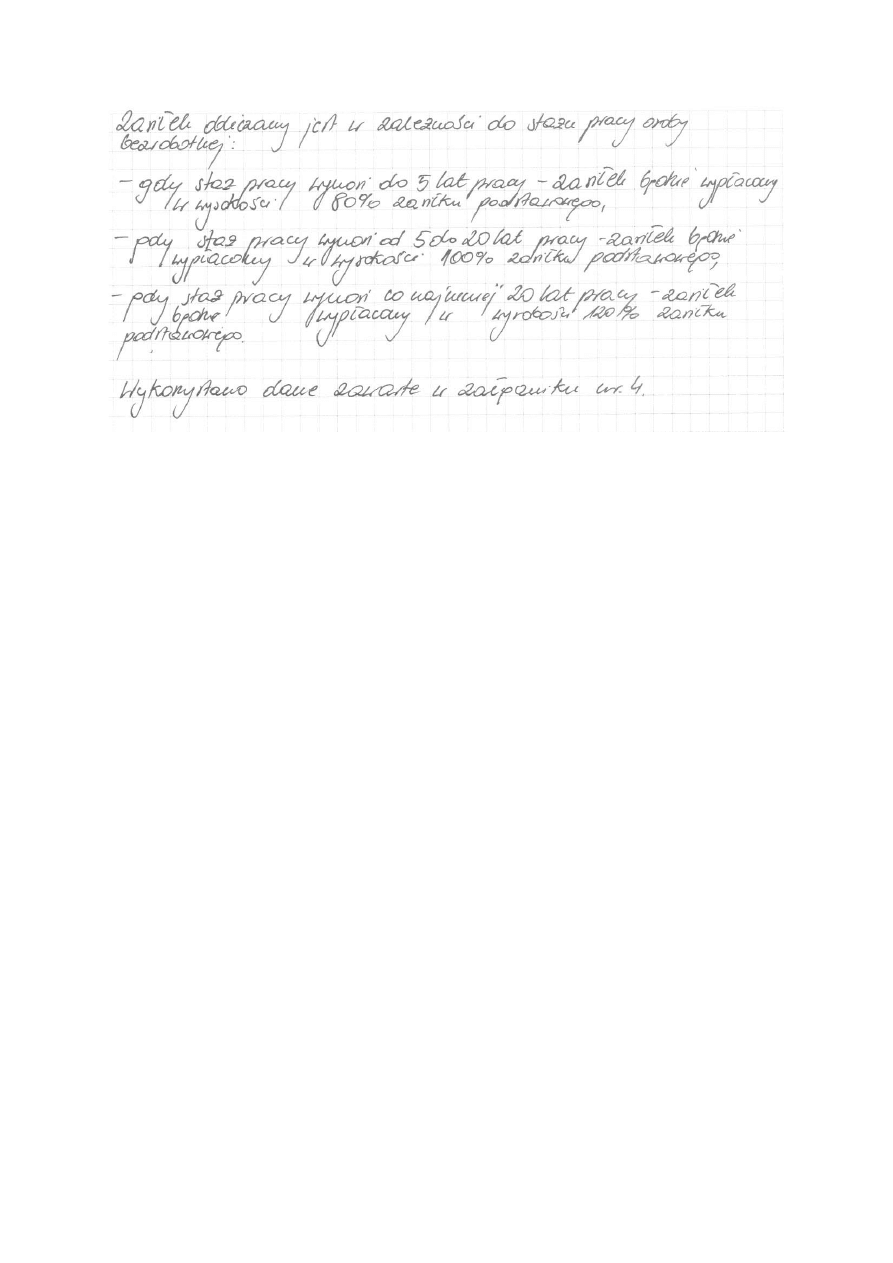 Zasiłek obliczany jest w zależności do stażu pracy osoby
bezrobotnej:
- gdy staż pracy wynosi do 5 lat pracy - zasiłek będzie wypłacany
w wysokości 80% zasiłku podstawowego,
- gdy staż pracy wynosi od 5 do 20 lat pracy - zasiłek będzie
wypłacany w wysokości 100% zasiłku podstawowego,
- gdy staż pracy wynosi co najmniej 20 lat pracy - zasiłek
będzie wypłacany w wysokości 120% zasiłku
podstawowego.
Wykorzystano dane zawarte w załączniku nr. 4.